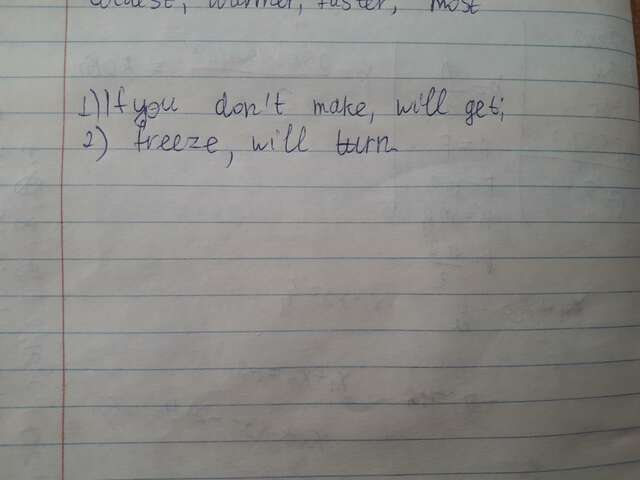 warmer, faster, most
1) If you don't make, will get;
2) freeze, will turn